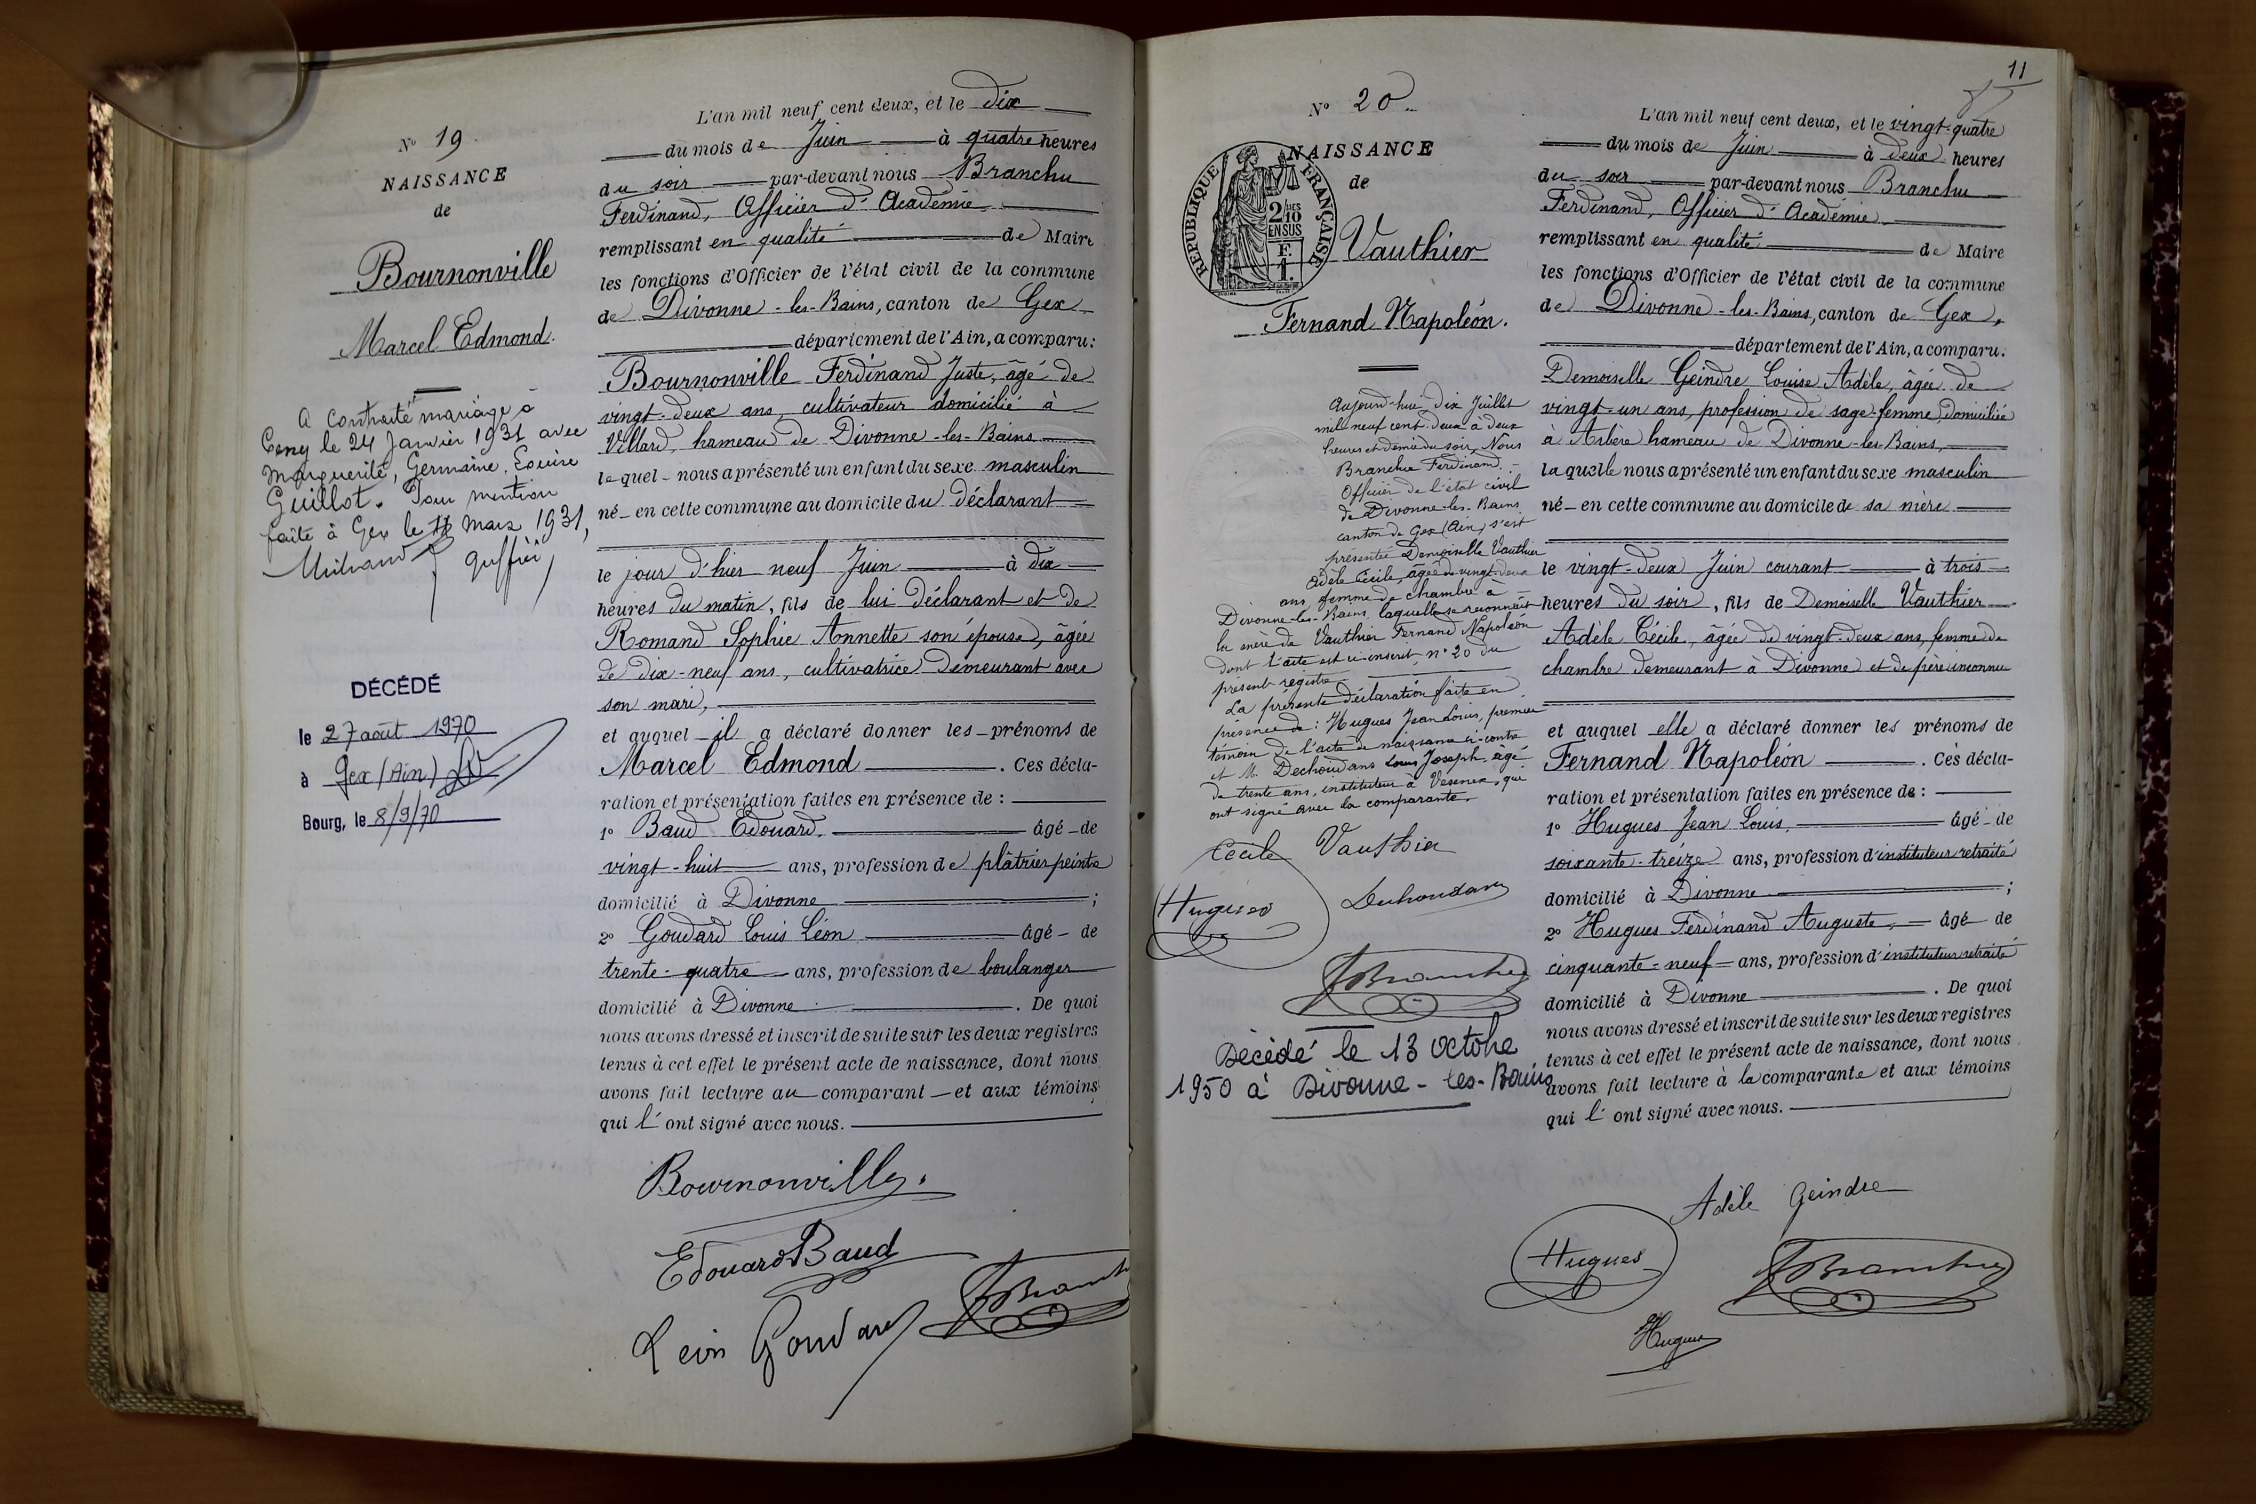 Nº 19.
NAISSANCE
de
Bournonville
Marcel Edmond.
A contracté mariage à
Cessy le 24 Janvier 1931 avec
Marguerite, Germaine, Louise
Guillot. Pour mention
faite à Gex le 11 Mars 1931,
greffier
DÉCÉDÉ
le 27 août 1970
à Gex (Ain)
Bourg, le 8/9/70
L'an mil neuf cent deux, et le dix
du mois de Juin à quatre heures
du soir par-devant nous Branchu
Ferdinand, Officier d'Académie
remplissant en qualité de Maire
les fonctions d'Officier de l'état civil de la commune
de Divonne-les-Bains, canton de Gex
département de l'Ain, a comparu:
Bournonville Ferdinand Juste, âgé de
vingt-deux ans, cultivateur domicilié à
Villard, hameau de Divonne-les-Bains
lequel nous a présenté un enfant du sexe masculin
né en cette commune au domicile du déclarant
le jour d'hier neuf Juin à dix
heures du matin, fils de lui déclarant et de
Romand Sophie Annette son épouse, âgée
de dix-neuf ans, cultivatrice demeurant avec
son mari,
et auquel il a déclaré donner les prénoms de
Marcel Edmond. Ces décla-
ration et présentation faites en présence de :
1º Baud Edouard. âgé de
vingt-huit ans, profession de plâtrier peintre
domicilié à Divonne ;
2º Goudard Louis Léon âgé de
trente-quatre ans, profession de boulanger
domicilié à Divonne. De quoi
nous avons dressé et inscrit de suite sur les deux registres
tenus à cet effet le présent acte de naissance, dont nous
avons fait lecture au comparant et aux témoins
qui l'ont signé avec nous.
Bournonville.
Edouard Baud
Léon Goudard
Branchu
11
Nº 20
NAISSANCE
de
REPUBLIQUE FRANÇAISE
2/10
EN SUS
F.
1.
Vauthier
Fernand Napoléon.
Aujourd'hui dix Juillet
mil neuf cent deux à deux
heures et demie du soir, Nous
Branchu Ferdinand
Officier de l'état civil
de Divonne-les-Bains
canton de Gex (Ain) s'est
présentée Demoiselle Vauthier
Adèle Cécile, âgée de vingt-deux
ans, femme de chambre à
Divonne-les-Bains, laquelle se reconnaît
la mère de Vauthier Fernand Napoléon
dont l'acte est ci-inscrit, nº 20 du
présent registre.
La présente déclaration faite en
présence de : Hugues Jean Louis, premier
témoin de l'acte de naissance ci-contre
et M. Dechoudans Louis Joseph, âgé
de trente ans, instituteur à Vesenex, qui
ont signé avec la comparante.
Cécile Vauthier
Hugues
Branchu
Décédé le 13 octobre
1950 à Divonne-les-Bains
L'an mil neuf cent deux, et le vingt-quatre
du mois de Juin à deux heures
du soir par-devant nous Branchu
Ferdinand, Officier d'Académie
remplissant en qualité de Maire
les fonctions d'Officier de l'état civil de la commune
de Divonne-les-Bains, canton de Gex,
département de l'Ain, a comparu.
Demoiselle Geindre Louise Adèle, âgée de
vingt-un ans, profession de sage-femme, domiciliée
à Arbère hameau de Divonne-les-Bains,
laquelle nous a présenté un enfant du sexe masculin
né en cette commune au domicile de sa mère
le vingt-deux Juin courant à trois
heures du soir, fils de Demoiselle Vauthier
Adèle Cécile, âgée de vingt-deux ans, femme de
chambre demeurant à Divonne et de père inconnu
et auquel elle a déclaré donner les prénoms de
Fernand Napoléon. Ces décla-
ration et présentation faites en présence de :
1º Hugues Jean Louis, âgé de
soixante-treize ans, profession d'instituteur retraité
domicilié à Divonne ;
2º Hugues Ferdinand Auguste, âgé de
cinquante-neuf ans, profession d'instituteur retraité
domicilié à Divonne. De quoi
nous avons dressé et inscrit de suite sur les deux registres
tenus à cet effet le présent acte de naissance, dont nous
avons fait lecture à la comparante et aux témoins
qui l'ont signé avec nous.
Adèle Geindre
Hugues
Branchu
Hugues